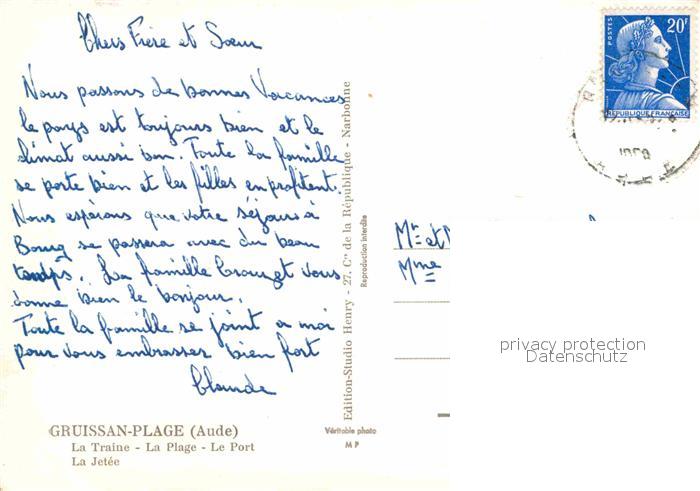 Chers Frère et Sœur
Nous passons de bonnes Vacances
le pays est toujours bien et le
climat aussi bon. Toute la famille
se porte bien et les filles en profitent.
Nous espérons que votre séjours à
Bourg se passera avec du beau
temps. La famille Crouzet vous
donne bien le bonjour.
Toute la famille se joint a moi
pour vous embrasser bien fort
Claude
GRUISSAN-PLAGE (Aude)
La Traine - La Plage - Le Port
La Jetée
Edition-Studio Henry - 27, Crs de la République - Narbonne
Reproduction interdite
Véritable photo
M P
POSTES
20F
REPUBLIQUE FRANÇAISE
Mr et
Mme
privacy protection
Datenschutz